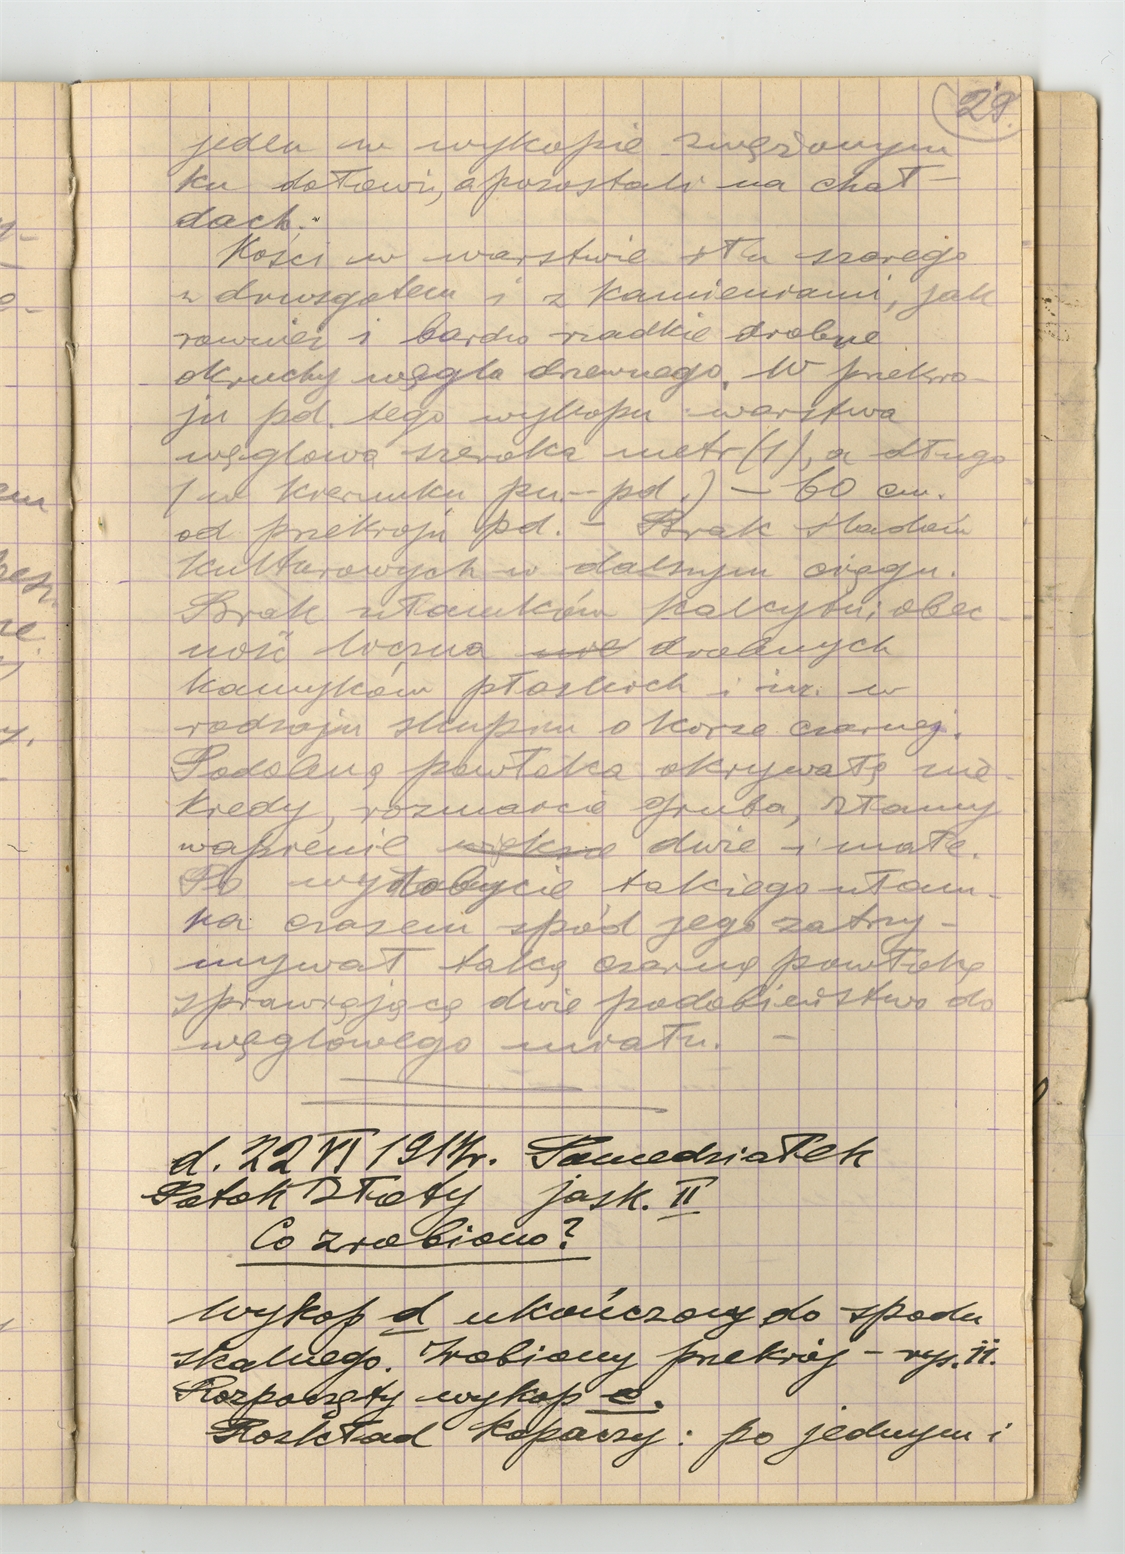 29.
jeden w wykopie zwężonym
ku dołowi, a pozostali na chał-
dach.
Kości w warstwie iłu szarego
z druzgotem i z kamieniami, jak
rownież i bardzo rzadkie drobne
okruchy węgla drzewnego. W przekro-
ju pd. tego wykopu warstwa
węglowa szeroka metr (1), a długa
(w kierunku pn.-pd.) - 60 cm.
od przekroju pd. - Brak śladów
kulturowych w dalszym ciągu.
Brak ułamków kalcytu; obec-
ność liczna drobnych
kamyków płaskich i in. w
rodzaju skupin o korze czarnej.
Podobną powłoka okrywałą nie-
kredy, rozmarcie gruba, złamy
wapienie większe dwie i małe.
Po wydobycie takiego ułam-
ka czasem spód jego zatrzy-
mywał taką czarną powłokę
sprawiającą dwie podobieństwo do
węglowego miału. -
d. 22 VI 1914r. Poniedziałek
Potok Złoty jask. II
Co zrobiono?
Wykop d ukończony do spodu
skalnego. Zrobiony przekrój - rys. II.
Rozpoczęty wykop e.
Rozkład kopaczy: po jednym i